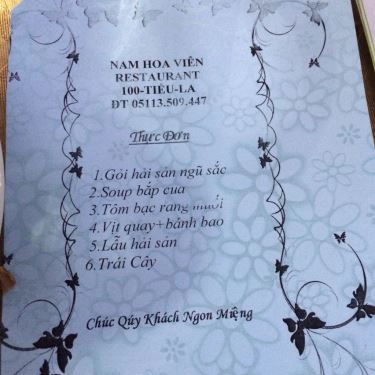 NAM HOA VIÊN
RESTAURANT
100-TIỂU-LA
ĐT 05113.509.447
Thực Đơn
1.Gỏi hải sản ngũ sắc
2.Soup bắp cua
3.Tôm bạc rang muối
4.Vịt quay+bánh bao
5.Lẩu hải sản
6.Trái Cây
Chúc Qúy Khách Ngon Miệng